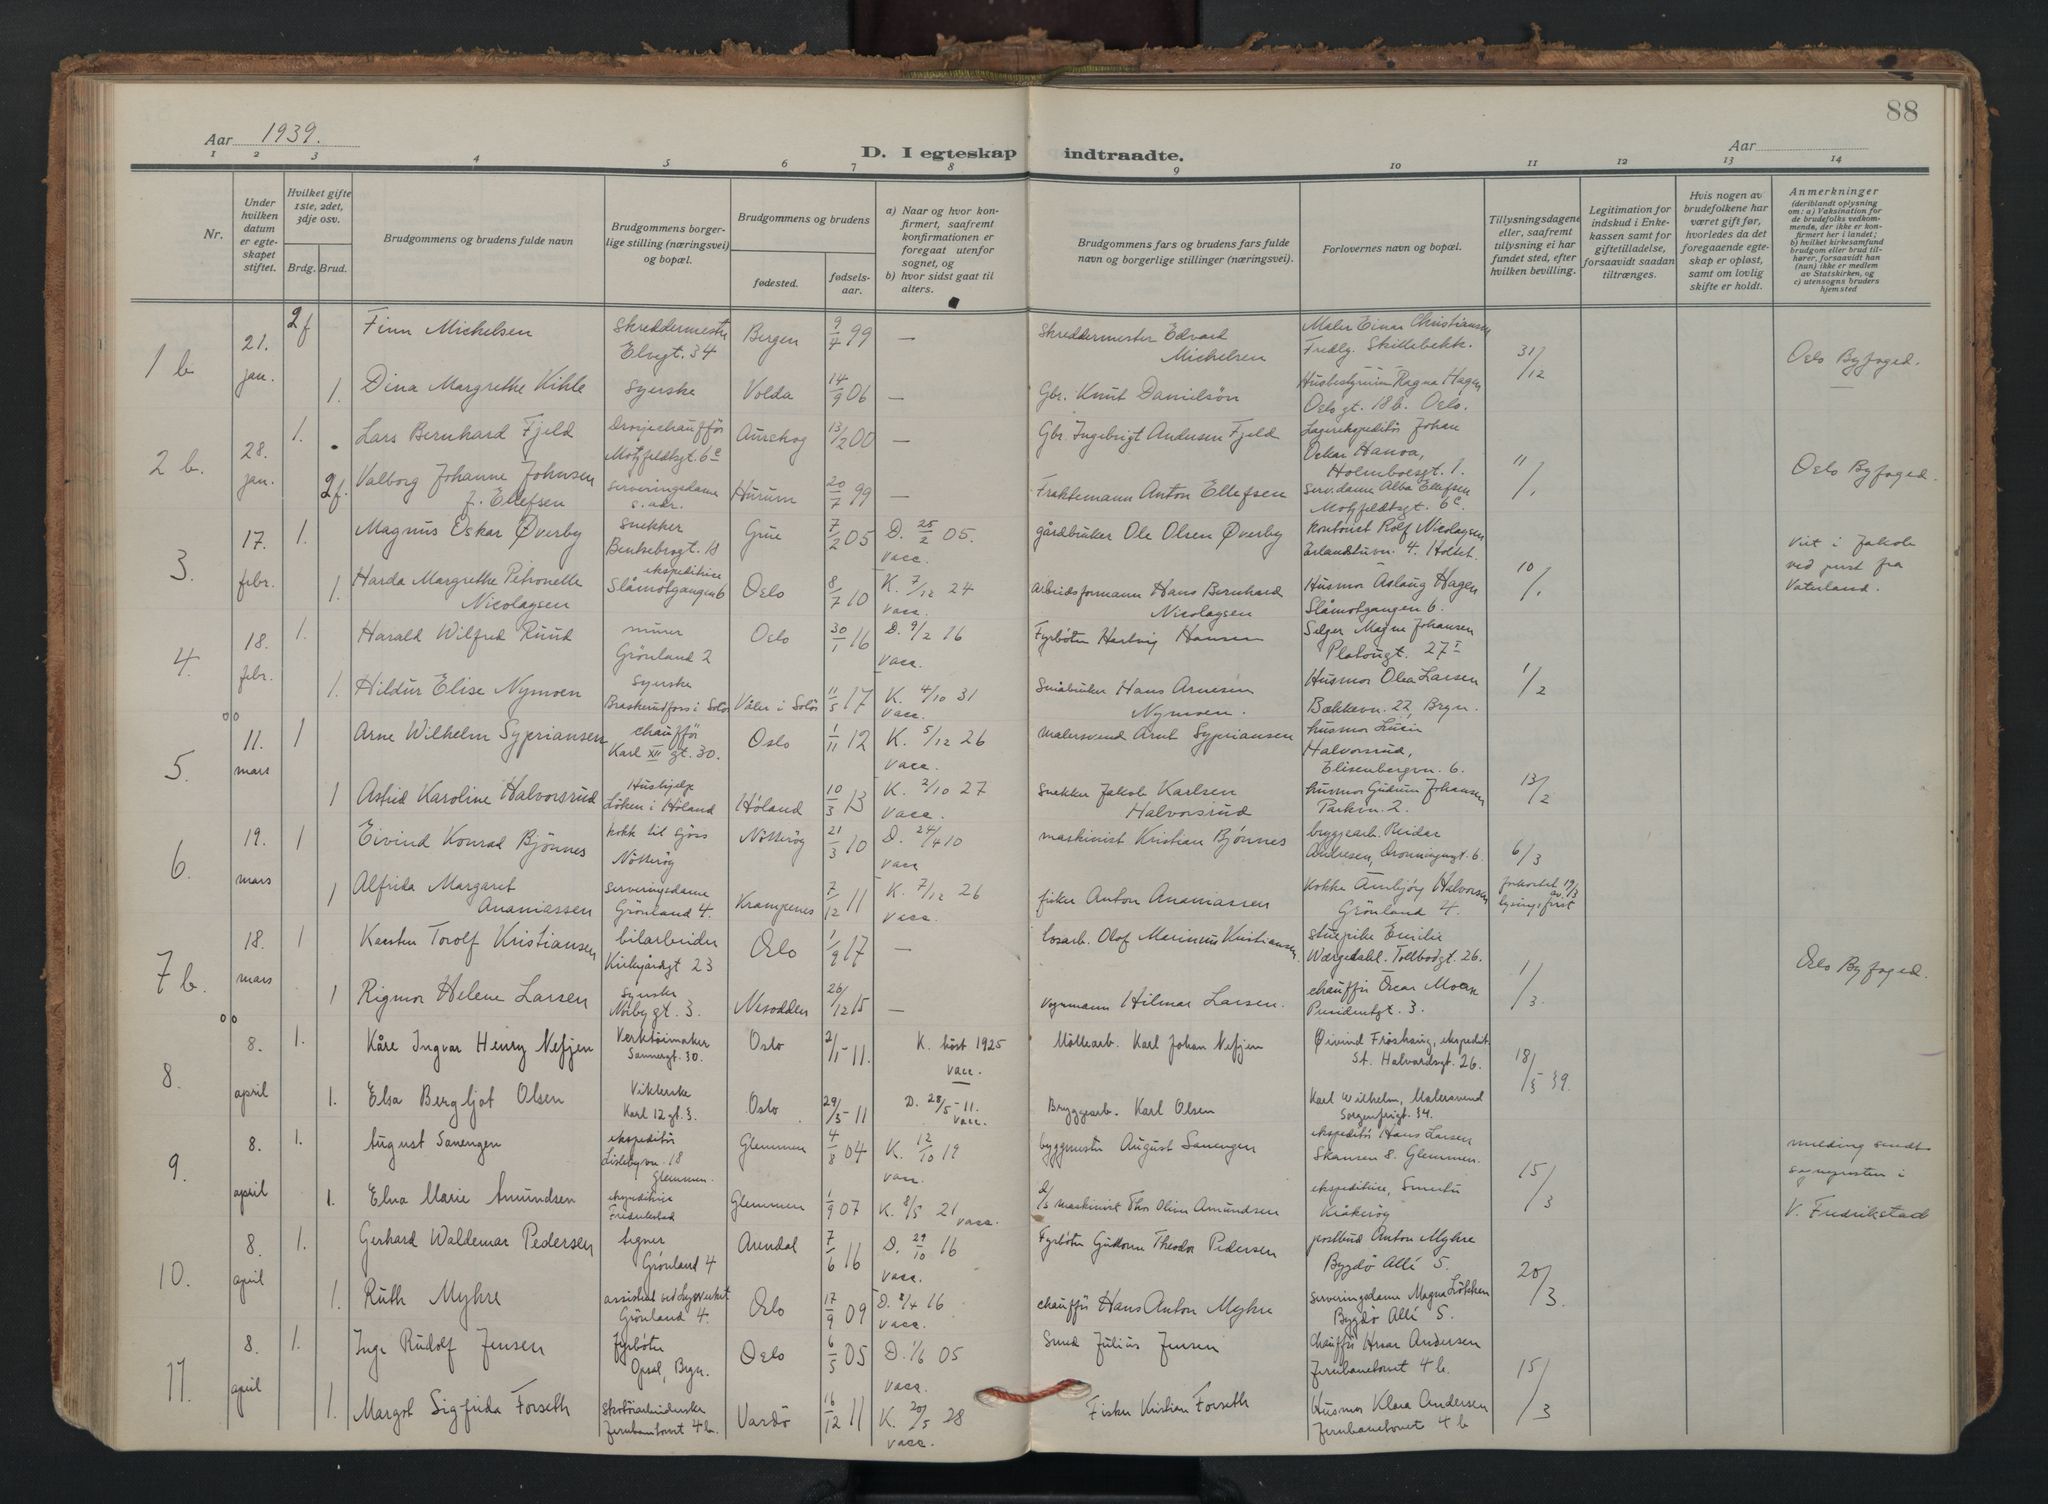 88
Aar 1939.
D. I egteskap indtraadte.
Aar
1 2 3 4 5 6 7 8 9 10 11 12 13 14
Nr.
Under hvilken datum er egteskapet stiftet.
Hvilket gifte 1ste, 2det, 3dje osv.
Brdg. Brud.
Brudgommens og brudens fulde navn
Brudgommens borgerlige stilling (næringsvei) og bopæl.
Brudgommens og brudens
fødested.
fødselsaar.
a) Naar og hvor konfirmert, saafremt konfirmationen er foregaat utenfor sognet, og
b) hvor sidst gaat til alters.
Brudgommens fars og brudens fars fulde navn og borgerlige stillinger (næringsvei).
Forlovernes navn og bopæl.
Tillysningsdagene eller, saafremt tillysning ei har fundet sted, efter hvilken bevilling.
Legitimation for indskud i Enkekassen samt for giftetilladelse, forsaavidt saadan tiltrænges.
Hvis nogen av brudefolkene har været gift før, hvorledes da det foregaaende egteskap er opløst, samt om lovlig skifte er holdt.
Anmerkninger (deriblandt oplysning om: a) Vaksination for de brudefolks vedkommende, der ikke er konfirmert her i landet; b) hvilket kirkesamfund brudgom eller brud tilhører, forsaavidt han (hun) ikke er medlem av Statskirken, og c) utensogns bruders hjemsted
1 b. 21. jan. 2f Finn Michelsen Skreddermester Elvegt. 34 Bergen 9/4 99 — Skreddermester Edvard Michelsen Maler Einar Christiansen Fredlg. Skillebekk. 31/12 Oslo Byfoged.
1. Dina Margrethe Kihle Syerske Volda 14/9 06 — Gbr. Knut Danielsön Husbestyrerinne Ragna Hagen Oslo gt. 18 b. Oslo.
2 b. 28. jan. 1. Lars Bernhard Fjeld Drosjechaufför Motzfeldtsgt. 6c Aurskog 13/2 00 — Gbr. Ingebrigt Andersen Fjeld Lagerekspeditör Johan Oskar Hanoa, Holmboesgt. 1. 11/1 Oslo Byfoged.
2f. Valborg Johanne Johnsen f. Ellefsen Serveringsdame s. adr. Hurum 20/7 99 — Fraktemann Anton Ellefsen serv.dame Alba Ellefsen Motzfeldtsgt. 6c.
3. 17. febr. 1. Magnus Oskar Øverby Snekker Bentsebrogt. 18 Grue 7/2 05 D. 25/2 05. vacc. gårdbruker Ole Olsen Øverby kontorist Rolf Nicolaysen Erlandstuvn. 4. Holtet. 10/1 Viet i Jakob ved prest fra Vaterland.
1. Harda Margrethe Petronelle Nicolaysen ekspeditrice Slåmotgangen 6 Oslo 8/7 10 K. 7/12 24 vacc. arbeidsformann Hans Bernhard Nicolaysen Husmor Åslaug Hagen Slåmotgangen 6.
4. 18. febr. 1. Harald Wilfred Ruud murer Grönland 2 Oslo 30/1 16 D. 9/2 16 vacc. Fyrböter Hartvig Hansen Selger Magne Johansen Platougt. 27 I 1/2
1. Hildur Elise Nymoen Syerske Braskerudfors i Solör Våler i Solör 11/5 17 K. 4/10 31 vacc. Småbruker Hans Arnesen Nymoen. Husmor Olea Larsen Bækkevn. 22, Bryn.
5. 11. mars 1 Arne Wilhelm Sypriansen chaufför Karl XII gt. 30. Oslo 1/11 12 K. 5/12 26 vacc. malersvend Arnt Sypriansen husmor Halvorsrud, Elisenbergvn. 6. 13/2
1 Astrid Karoline Halvorsrud Hushjelp Löken i Höland Höland 10/3 13 K. 2/10 27 vacc. Snekker Jakob Karlsen Halvorsrud husmor Gudrun Johansen Parkvn. 2.
6. 19. mars 1 Eivind Konrad Bjönnes kokk til sjöss Nötteröy Nötteröy 21/3 10 D. 24/4 10 vacc maskinist Kristian Bjönnes bryggearb. Reidar Andresen, Dronningensgt. 6. 6/3
1 Alfrida Margaret Ananiassen serveringsdame Grönland 4. Krampenes 7/12 11 K. 7/12 26 vacc. fisker Anton Ananiassen Kokke Annbjörg Halvorsen Grönland 4. forkortet 19/3 av lysingsfrist
7 b. 18. mars 1 Karsten Torolf Kristiansen bilarbeider Kirkegårdsgt 23 Oslo 1/9 17 — losarb. Olof Marinius Kristiansen stuepike Emilie Wærgedahl. Tollbodgt. 26. 1/3. Oslo Byfoged.
1 Rigmor Helene Larsen Syerske Nörbygt. 3. Nesodden 26/12 15 — vognmann Hilmar Larsen. chaufför Oscar Moen Presidentgt. 3.
8. 8. april 1. Kåre Ingvar Henry Nefjen Verktöimaker Sannergt. 30. Oslo 2/1-11. K. höst 1925 vacc. Möllearb. Karl Johan Nefjen Øivind Fröshaug, ekspeditör St. Halvardsgt. 26. 18/3 39.
1. Elsa Bergljot Olsen Viklerske Karl 12 gt. 3. Oslo 29/3-11 D. 28/5-11. vacc. Bryggearb. Karl Olsen Karl Wilhelm, Malersvend Sorgenfrigt. 34.
9. 8. april 1. August Sanengen ekspeditör Lislebyvn. 18 Glemmen. Glemmen 4/8 04 K. 12/10 19 vacc. byggmester August Sanengen ekspeditör Hans Larsen Skansen 8. Glemmen. 15/3 melding sendt sognepresten i V. Fredrikstad
1. Elna Marie Amundsen ekspeditrice Fredrikstad Glemmen 1/9 07 K. 8/5 21 vacc. d/s maskinist Thor Oliver Amundsen ekspeditrice, Kråkeröy
10. 8. april 1. Gerhard Waldemar Pedersen tegner Grönland 4 Arendal 7/6 16 D. 29/10 16 vacc. Fyrböter Guttorm Theodor Pedersen postbud Anton Myhre Bygdö Allé 5. 20/3.
1. Ruth Myhre Grönland 4. Oslo 17/9 09 D. 2/4 16 vacc. chaufför Hans Anton Myhre serveringsdame Magna Lökken Bygdö Allé 5.
11. 8. april 1. Inge Rudolf Jensen fyrböter Opsal, Bryn. Oslo 6/5 05 D. 1/6 05 vacc. Smed Julius Jensen Chaufför Andersen Jernbanetorvet 4 b. 15/3
1. Margot Sigfrida Forseth skotöiarbeiderske Jernbanetorvet 4 b. Vardö 16/12 11 K. 20/5 28 vacc. Fisker Kristian Forseth Husmor Klara Andersen Jernbanetorvet 4 b